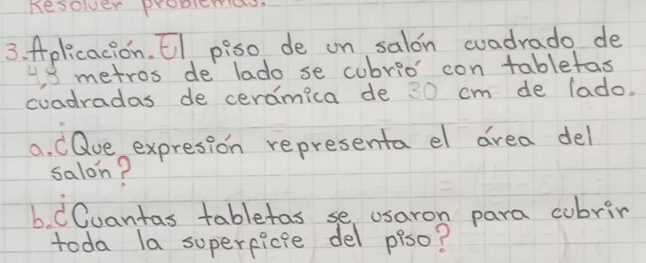 Resolver problemas.
3. Aplicación. El piso de un salón cuadrado de
4.8 metros de lado se cubrió con tabletas
cuadradas de cerámica de 30 cm de lado.
a. ¿Que expresión representa el área del
salón?
b. ¿Cuantas tabletas se usaron para cubrir
toda la superficie del piso?